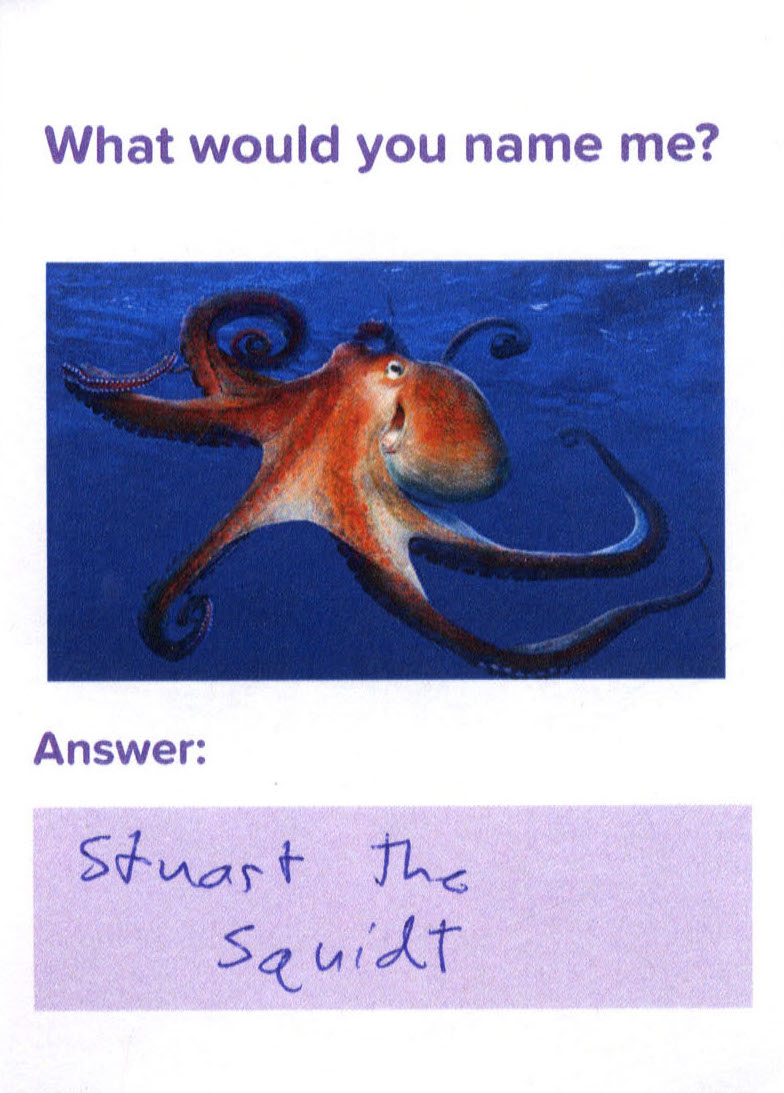 What would you name me?
Answer:
Stuart the
Squidt